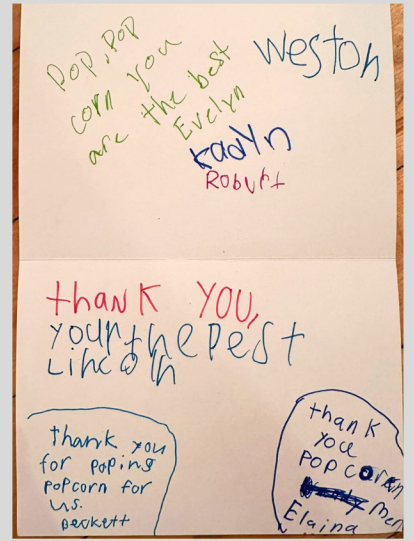 Pop, Pop
corn you
are the best
Evelyn
Weston
Kadyn
Robert
thank you,
your the Best
Lincoln
thank you
for poping
popcorn for
us.
Beckett
thank
you
popcorn
man
Elaina